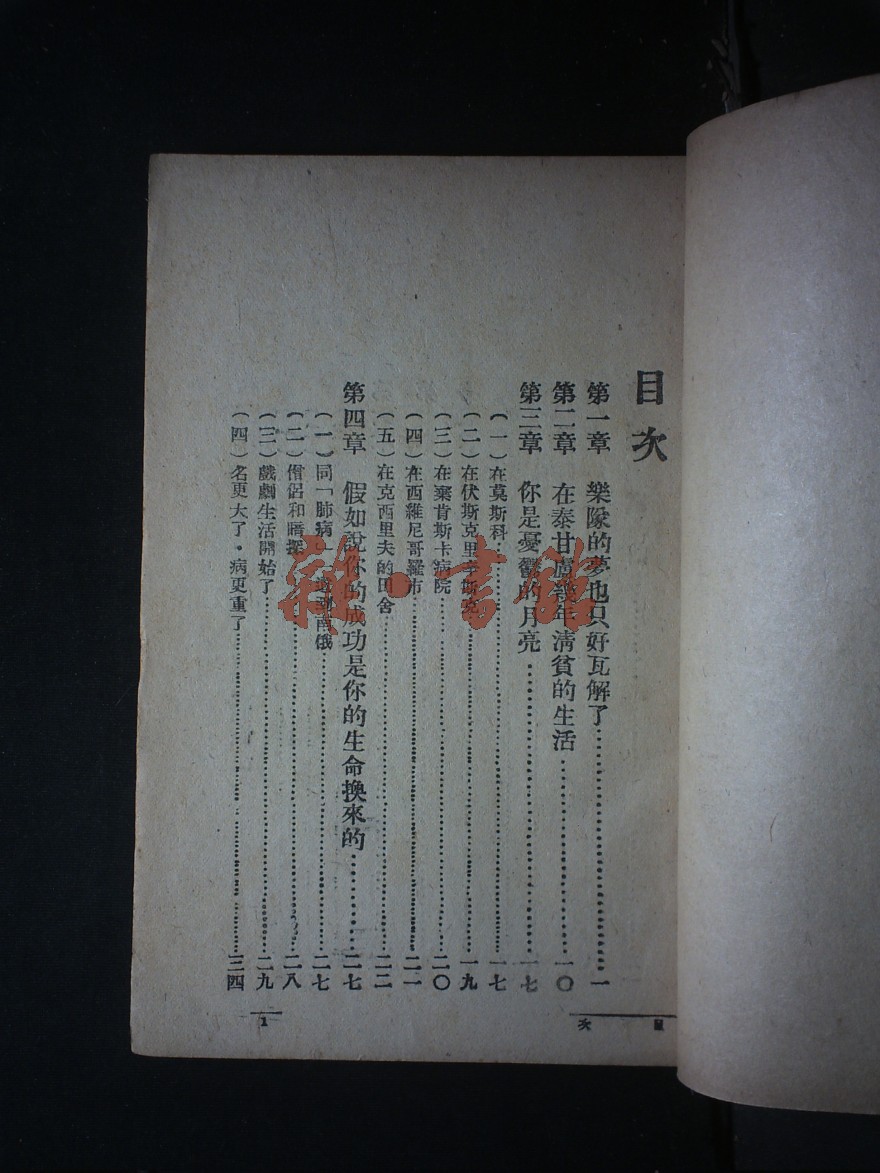 目次
第一章 樂隊的夢也只好瓦解了……一
第二章 在泰甘盧幾年清貧的生活……一〇
第三章 你是憂鬱的月亮……一七
（一）在莫斯科……一七
（二）在伏斯克里辛斯克……一九
（三）在棄肯斯卡病院……二〇
（四）在西維尼哥羅市……二一
（五）在克西里夫的田舍……二二
第四章 假如說你的成功是你的生命換來的……二七
（一）同「肺病」南俄……二七
（二）僧侶和暗探……二八
（三）戲劇生活開始了……二九
（四）名更大了·病更重了……三四
目次
1
雜·書館